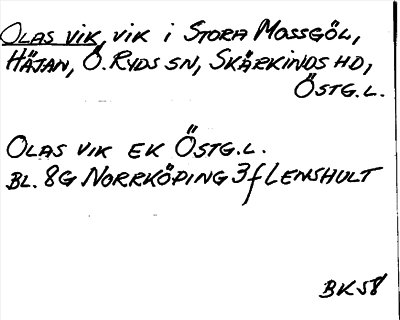 OLAS VIK, VIK I STORA MOSSGÖL,
HÄJAN, Ö. RYDS SN, SKÄRKINDS HD,
ÖSTG.L.
OLAS VIK EK ÖSTG.L.
BL. 8G NORRKÖPING 3f LENSHULT
BK58